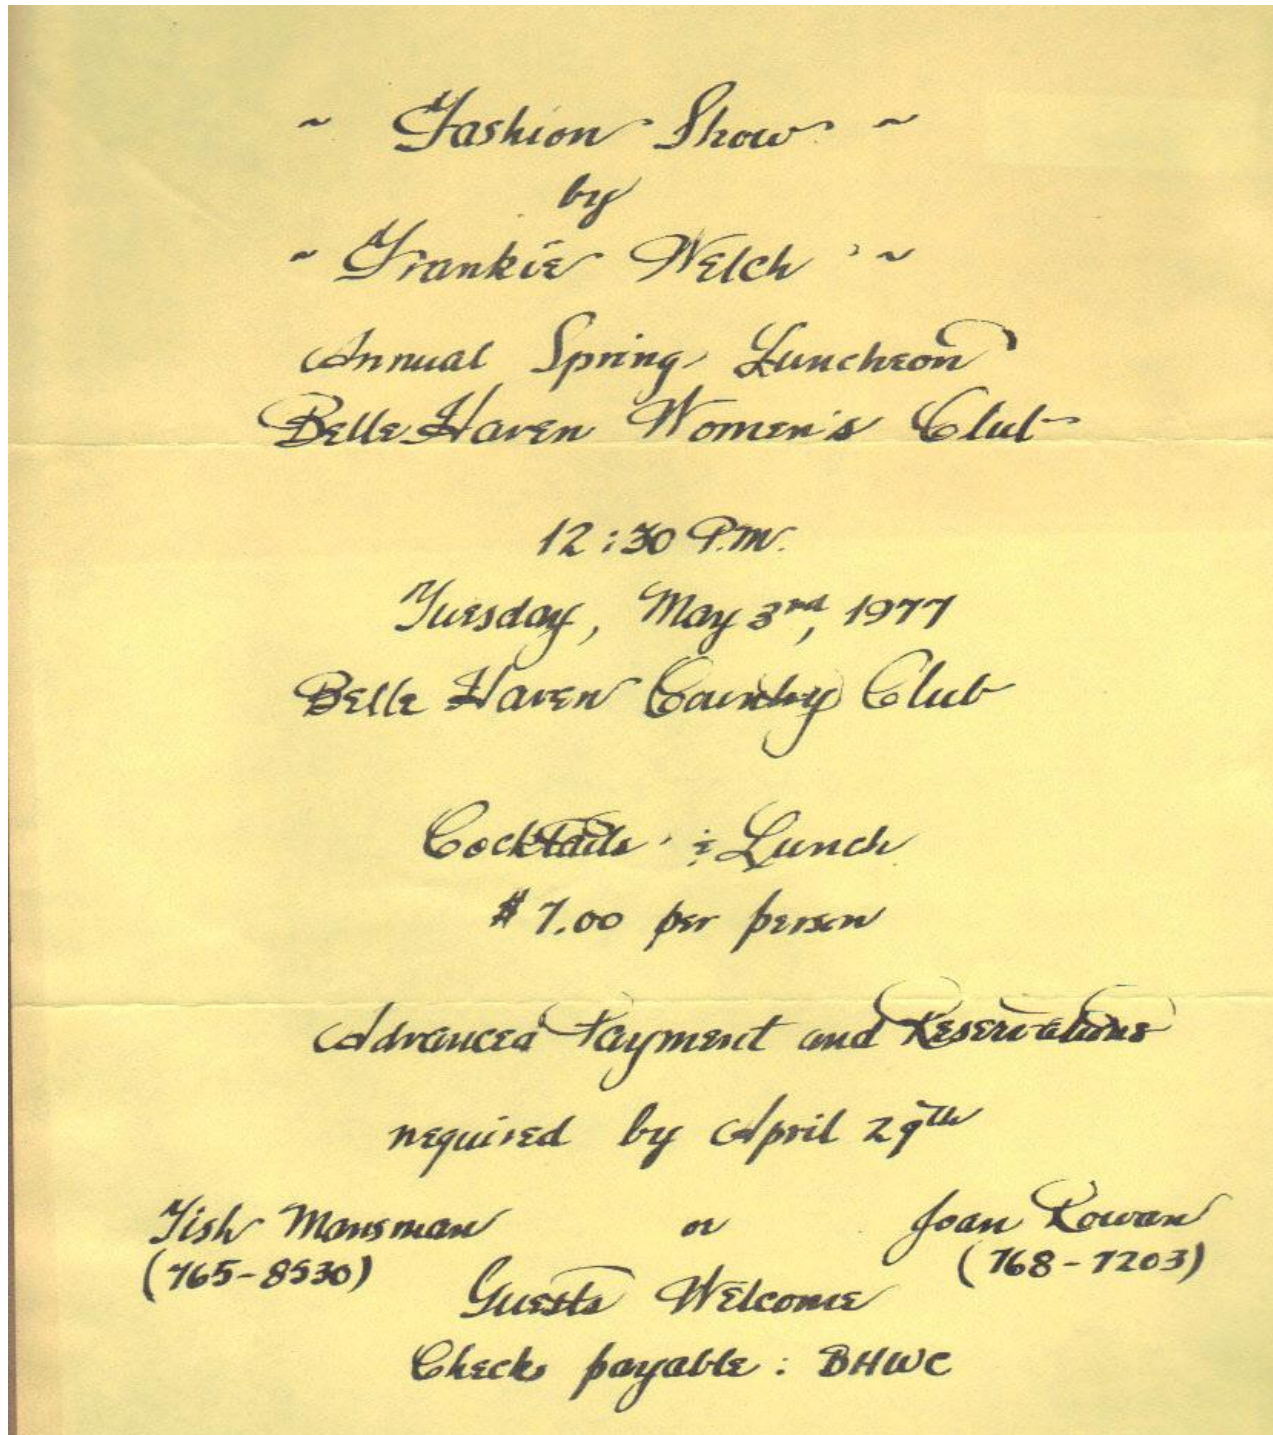 ~ Fashion Show ~
by
~ Frankie Welch ~
Annual Spring Luncheon
Belle Haven Women's Club
12:30 P.M.
Tuesday, May 3rd, 1977
Belle Haven Country Club
Cocktails & Lunch
$7.00 per person
Advanced Payment and Reservations
required by April 29th
Tish Mansman or Joan Rowan
(765-8530) (768-7203)
Guests Welcome
Checks payable: BHWC